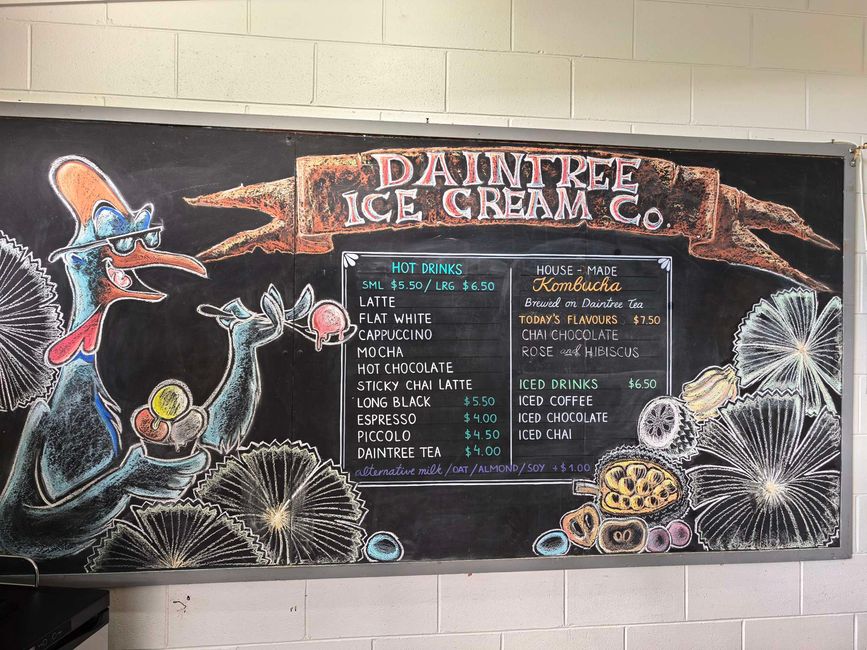 DAINTREE
ICE CREAM Co.
HOT DRINKS
SML $5.50 / LRG $6.50
LATTE
FLAT WHITE
CAPPUCCINO
MOCHA
HOT CHOCOLATE
STICKY CHAI LATTE
LONG BLACK $5.50
ESPRESSO $4.00
PICCOLO $4.50
DAINTREE TEA $4.00
HOUSE-MADE
Kombucha
Brewed on Daintree Tea
TODAY'S FLAVOURS $7.50
CHAI CHOCOLATE
ROSE and HIBISCUS
ICED DRINKS $6.50
ICED COFFEE
ICED CHOCOLATE
ICED CHAI
alternative milk / OAT / ALMOND / SOY +$1.00